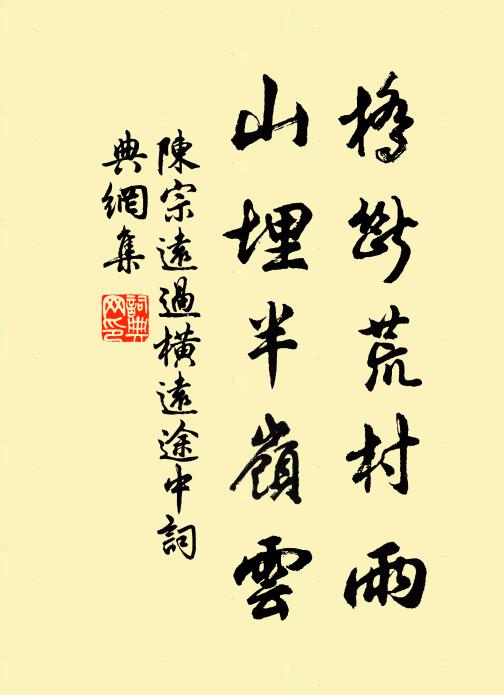 橋斷荒村雨
山埋半嶺雲
陳宗遠過橫遠途中詞
典網集
詞典網印